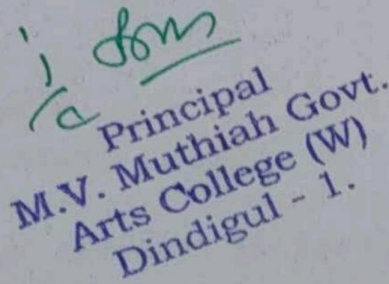 i/c
Principal
M.V. Muthiah Govt.
Arts College (W)
Dindigul - 1.